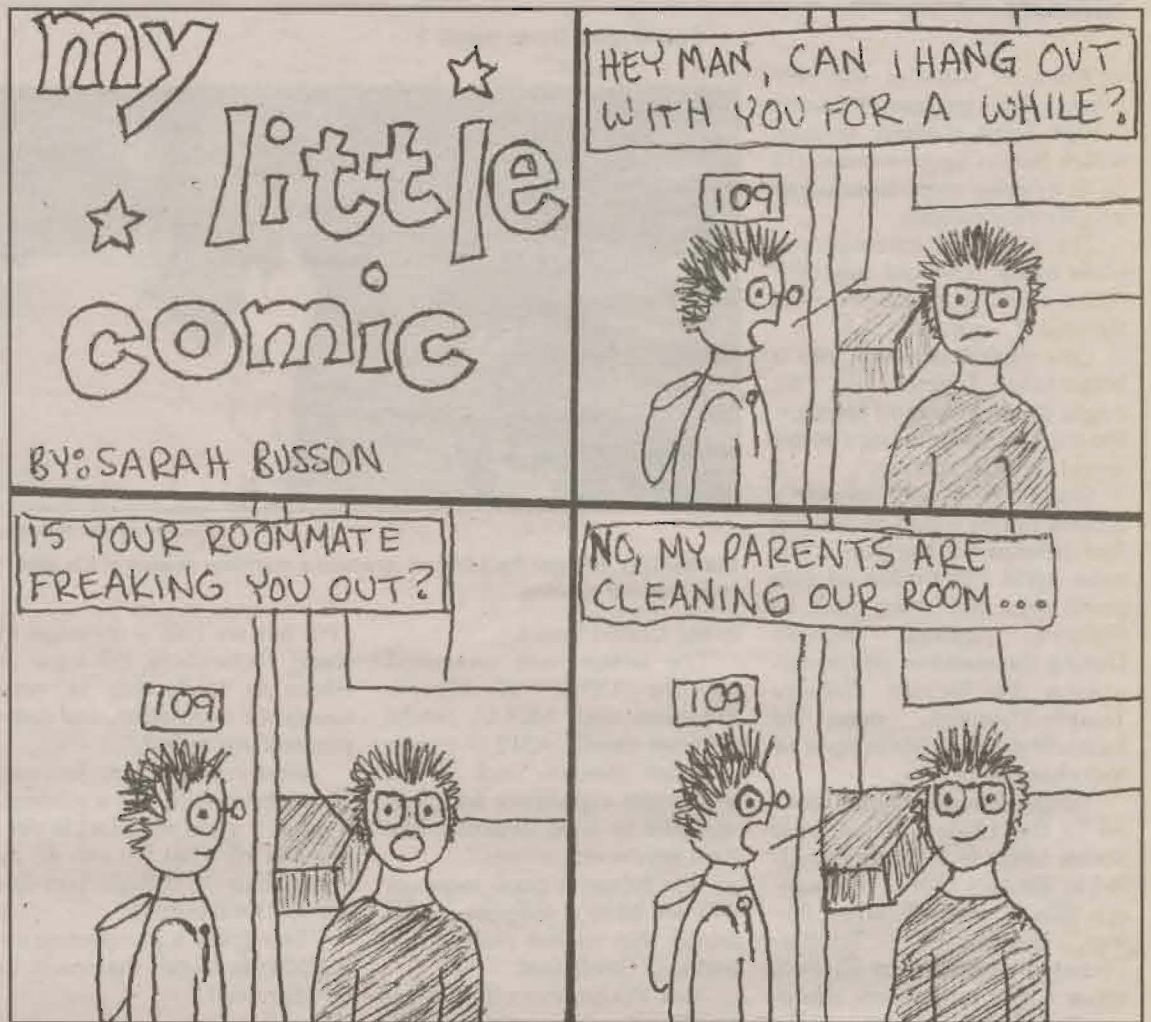 my
little
comic
BY: SARAH BUSSON
HEY MAN, CAN I HANG OUT
WITH YOU FOR A WHILE?
109
IS YOUR ROOMMATE
FREAKING YOU OUT?
109
NO, MY PARENTS ARE
CLEANING OUR ROOM...
109